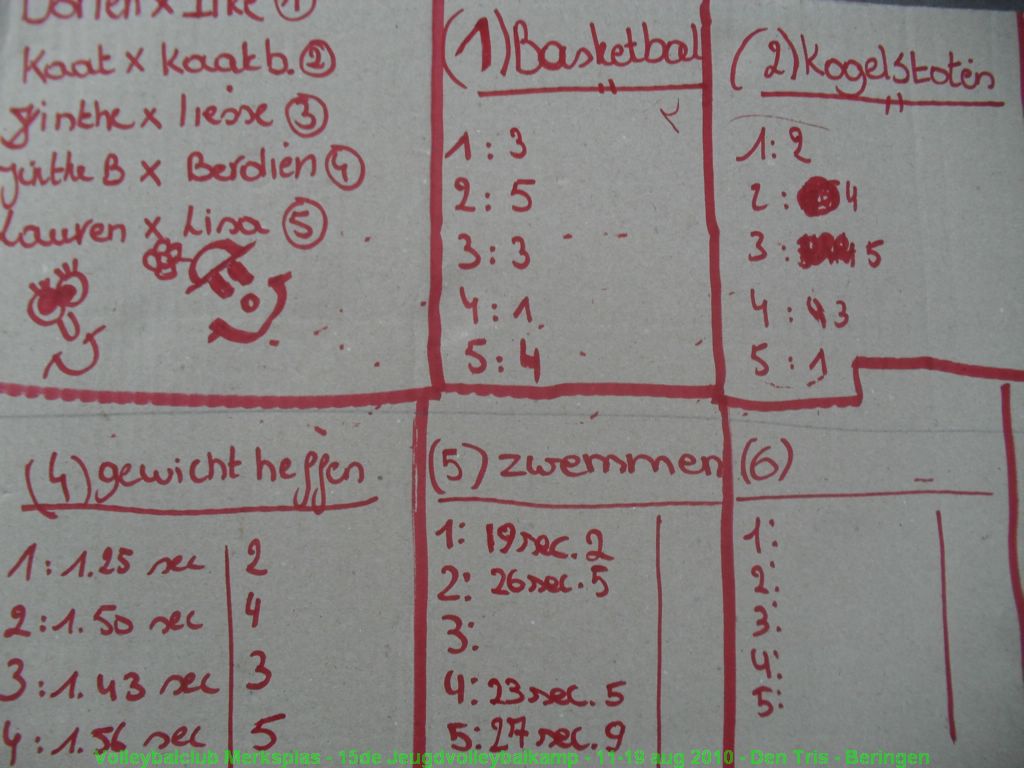 Dorien x Ilke (1)
Kaat x Kaat b. (2)
Jinthe x liesse (3)
Jinthe B x Berdien (4)
Lauren x Lisa (5)
(1) Basketbal
1: 3
2: 5
3: 3
4: 1
5: 4
(2) Kogelstoten
1: 2
2: 4
3: 5
4: 3
5: 1
(4) gewicht heffen
1: 1.25 sec 2
2: 1.50 sec 4
3: 1.43 sec 3
4: 1.56 sec 5
(5) zwemmen
1: 19sec. 2
2: 26sec. 5
3:
4: 23sec. 5
5: 27sec. 9
(6)
1:
2:
3:
4:
5:
Volleybalclub Merksplas - 15de Jeugdvolleybalkamp - 11-19 aug 2010 - Den Tris - Beringen